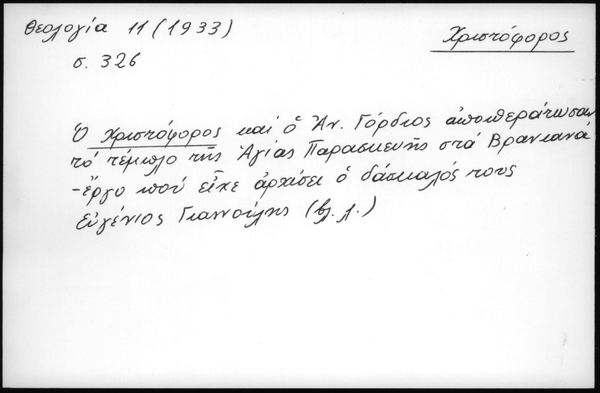 Θεολογία 11 (1933)
Χριστόφορος
σ. 326
Ὁ Χριστόφορος καί ὁ Ἀν. Γόρδιος ἀποπεράτωσαν
τό τέμπλο τῆς Ἁγίας Παρασκευῆς στά Βρανιανά
-ἔργο πού εἶχε ἀρχίσει ὁ δάσκαλός τους
Εὐγένιος Γιαννούλης (βλ. λ.)